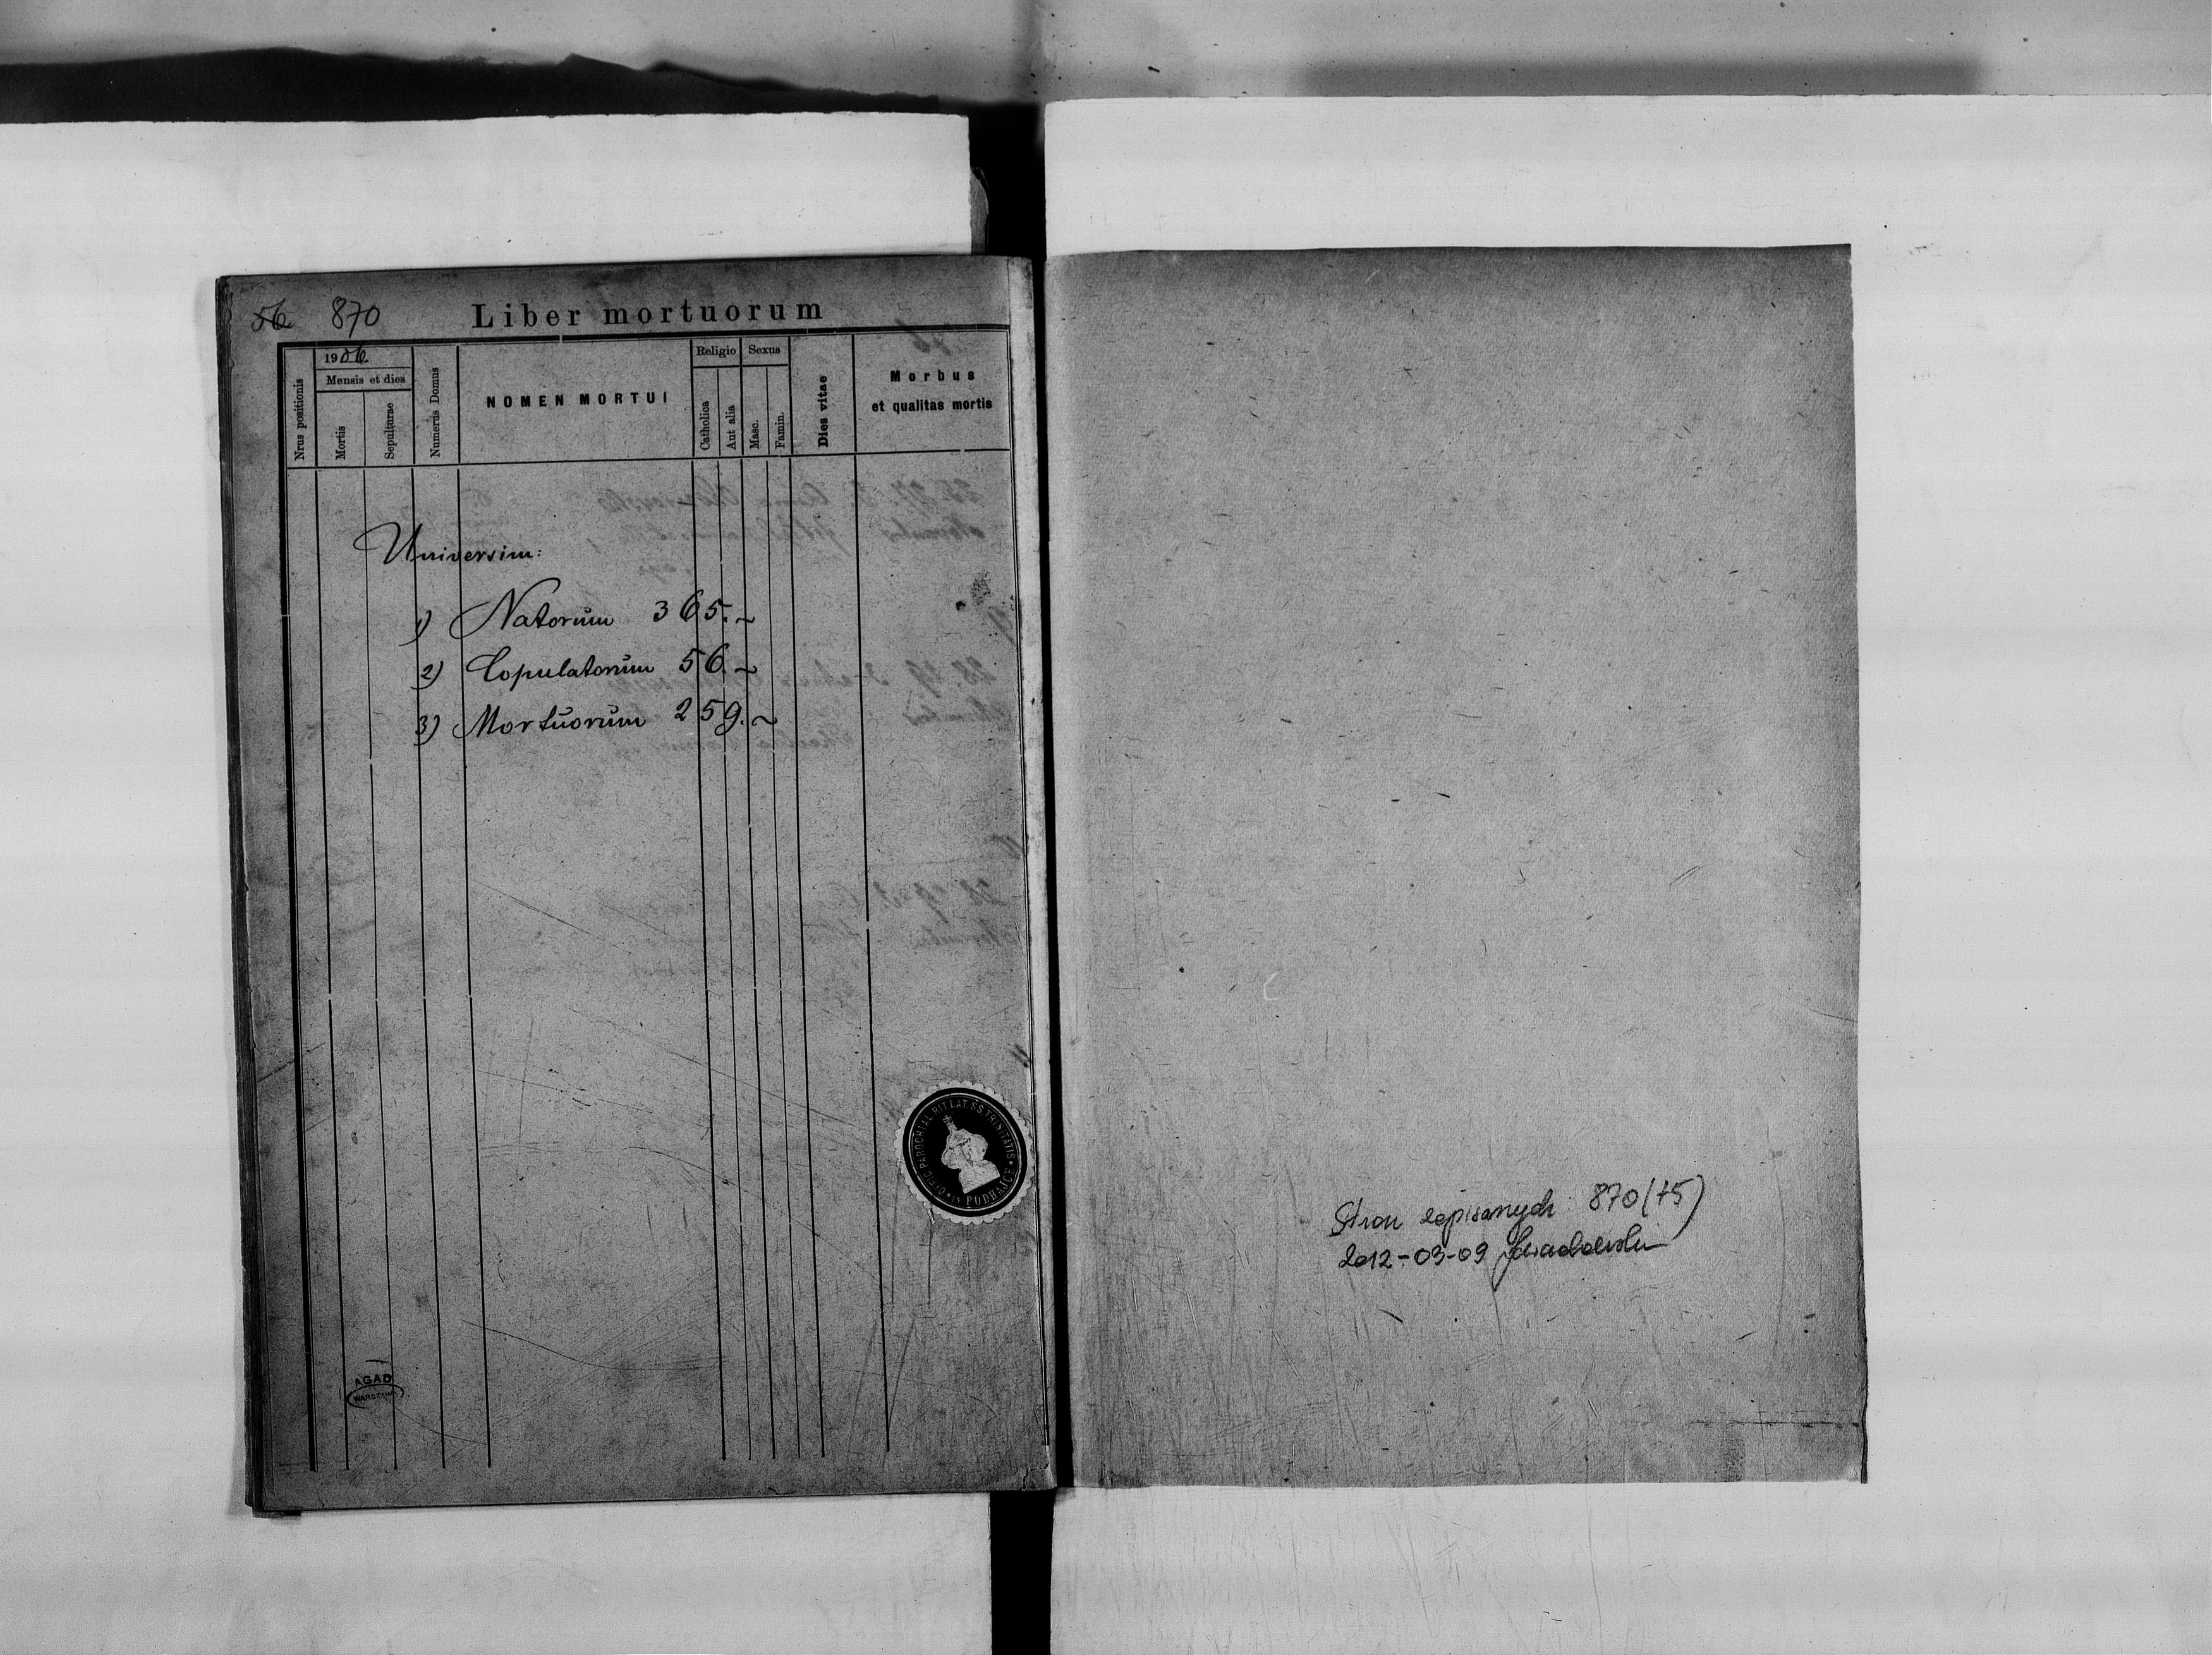 56 870 Liber mortuorum
1906
Mensis et dies
Nrus positionis
Mortis
Sepulturae
Numerus Domus
NOMEN MORTUI
Religio
Catholica
Aut alia
Sexus
Masc.
Famin.
Dies vitae
Morbus
et qualitas mortis
Universim:
1) Natorum 365.~
2) Copulatorum 56.~
3) Mortuorum 259.~
OFFIC. PAROCHIAL. RIT. LAT. SS. TRINITATIS * IN PODHAJCE *
AGAD
WARSZAWA
Stron zapisanych: 870 (+5)
2012-03-09